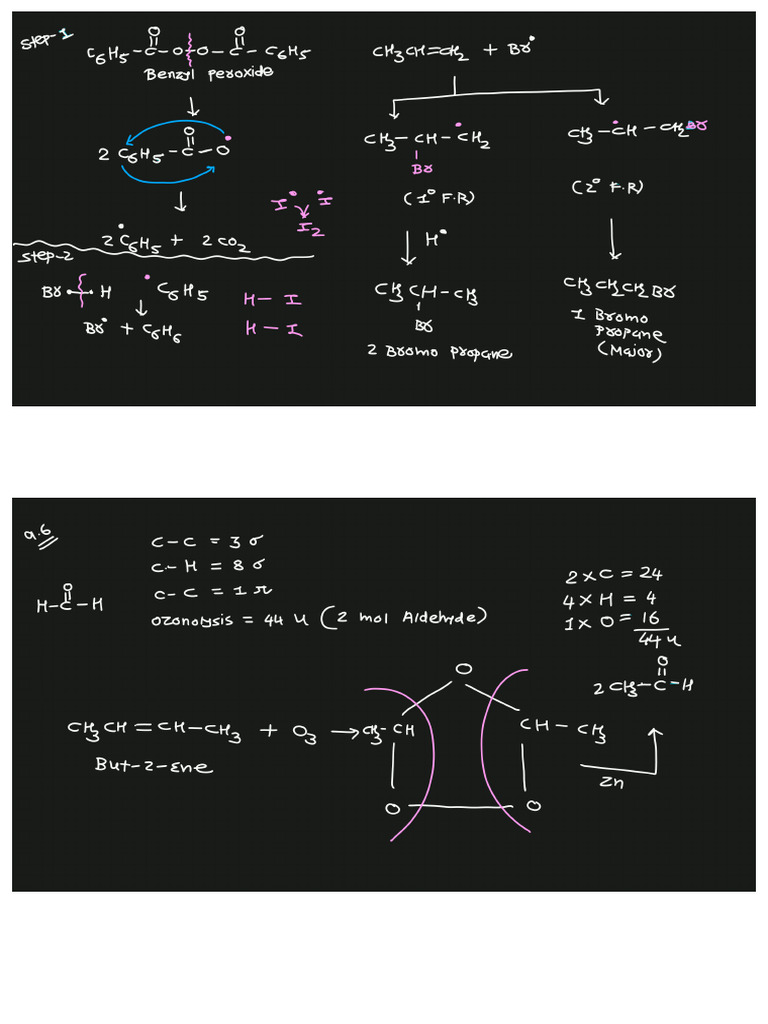 Step-1
O O
C6H5–C–O–O–C–C6H5
Benzyl peroxide
O
2 C6H5–C–O•
2 •C6H5 + 2CO2
I• •I
I2
Step-2
Br–H •C6H5
Br• + C6H6
H–I
H–I
CH3CH=CH2 + Br•
CH3–CH–•CH2
Br
(1° F.R)
H•
CH3CH–CH3
Br
2 Bromo propane
CH3–•CH–CH2Br
(2° F.R)
CH3CH2CH2Br
1 Bromo
propane
(Major)
Q.6
O
H–C–H
C–C = 3 σ
C–H = 8 σ
C–C = 1 π
Ozonolysis = 44 u (2 mol Aldehyde)
2×C = 24
4×H = 4
1×O = 16
44 u
O
2CH3–C–H
CH3CH=CH–CH3 + O3 → CH3–CH O CH–CH3
O O
But-2-ene
Zn